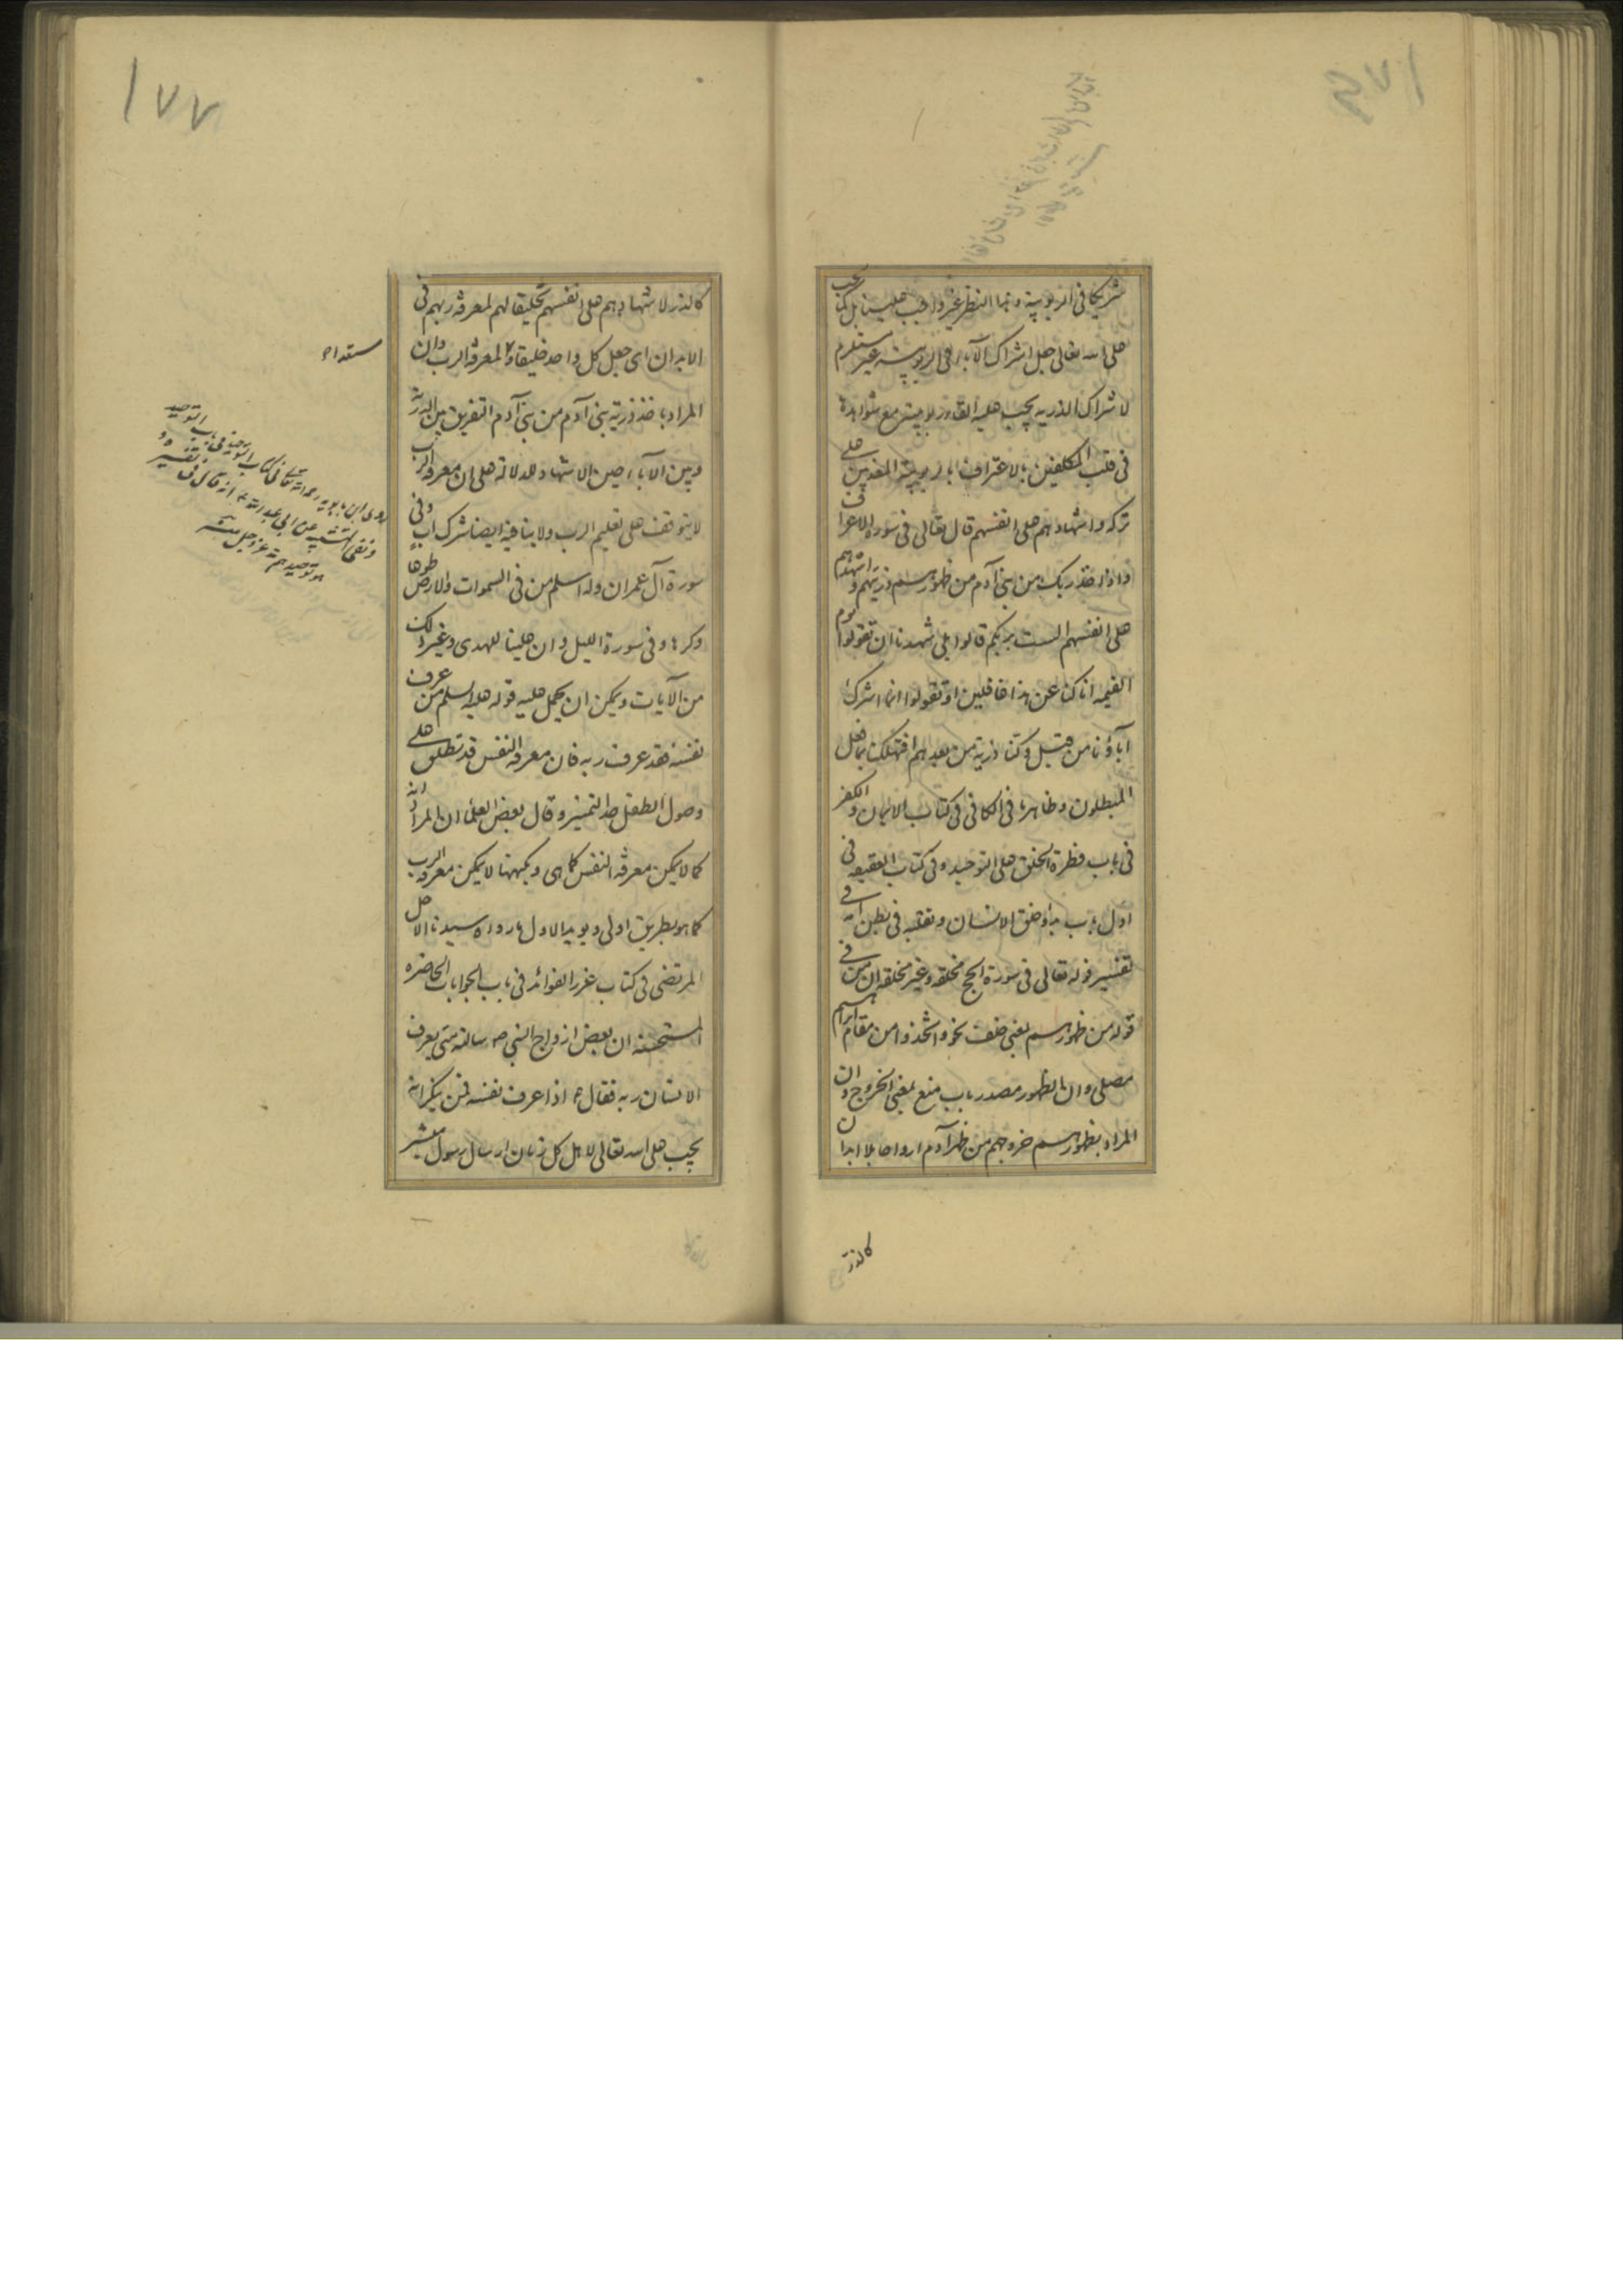 شريكا فى الربوبية وبها النظر غير واجب علينا بل يجب
على الله تعالى جعل اشراك الآباء فى الربوبية غير مستلزم
لاشراك الذرية يجب عليه القاء ربوبيته مع شواهدها
فى قلب المكلفين بالاعتراف بالربوبية المقدمين على
تركه واشهادهم على انفسهم قال تعالى فى سورة الاعراف
واذ اخذ ربك من بنى آدم من ظهورهم ذريتهم واشهدهم
على انفسهم الست بربكم قالوا بلى شهدنا ان تقولوا يوم
القيمه انا كنا عن هذا غافلين او تقولوا انما اشرك
آباؤنا من قبل وكنا ذرية من بعدهم افتهلكنا بما فعل
المبطلون وظاهر ما فى الكافى فى كتاب الايمان والكفر
فى باب فطرة الخلق على التوحيد وفى كتاب العقيقه فى
اول باب بدأ خلق الانسان وتقلبه فى بطن امه فى
تفسير قوله تعالى فى سورة الحج مخلقه وغير مخلقه ان من فى
قوله من ظهورهم بمعنى خلف نحو واتخذوا من مقام ابراهيم
مصلى وان الظهور مصدر باب منع بمعنى الخروج وان
المراد بظهورهم خروجهم من ظهر آدم ارواحا بلا ابدان
كالذر
١٧٧
كالذر لاشهادهم على انفسهم تخليقا لهم لمعرفة ربهم فى
الابدان اى جعل كل واحد خليقا لمعرفة الرب وان
المراد باخذ ذرية بنى آدم من بنى آدم التفريق بين الذرية
وبين الآباء حين الاشهاد للدلالة على ان معرفة الرب
لا يتوقف على تعليم الرب ولا ينافيه ايضا شرك اب وفى
سورة آل عمران وله اسلم من فى السموات والارض طوعا
وكرها وفى سورة الليل وان علينا للهدى وغير ذلك
من الآيات ويمكن ان يحمل عليه قوله عليه السلم من عرف
نفسه فقد عرف ربه فان معرفة النفس قد تطلق على
وصول الطفل حد التميز وقال بعض العلماء ان المراد انه
كما لا يمكن معرفة النفس كما هى وبكنهها لا يمكن معرفة الرب
كما هو بطريق اولى ويؤيد الاول ما رواه سيدنا الاجل
المرتضى فى كتاب غرر الفوائد فى باب الجوابات الحاضره
المستحسنه ان بعض ازواج النبى ص سألته متى يعرف
الانسان ربه فقال ع اذا عرف نفسه فمن ينكر انه
يجب على الله تعالى لاهل كل زمان ارسال رسول مبشر
روى ابن بابويه رحمه الله تعالى فى كتاب التوحيد فى باب التوحيد
ونفى التشبيه عن ابى عبد الله ع انه قال فى تفسير